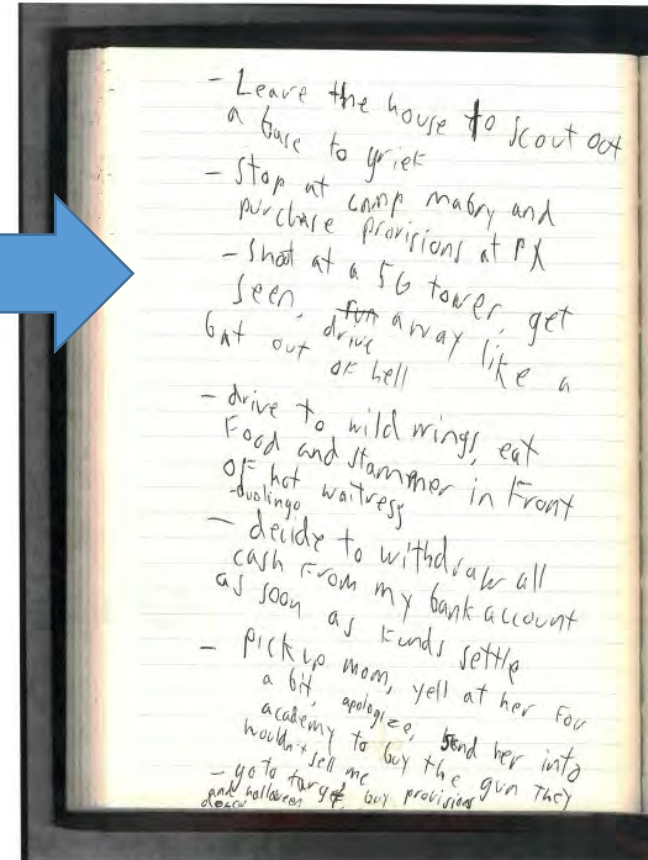 - Leave the house to scout out
a base to grief
- Stop at camp mabry and
purchase provisions at PX
- Shoot at a 5G tower, get
seen, fun away like a
drive
bat out of hell
- drive to wild wings, eat
Food and stammer in Front
of hot waitress
-duolingo
- decide to withdraw all
cash From my bank account
as soon as Funds settle
- Pick up mom, yell at her For
a bit, apologize, send her into
academy to buy the gun They
wouldn't sell me
- go to target, buy provisions
and halloween